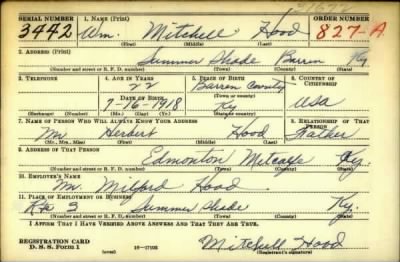 SERIAL NUMBER 1. NAME (Print) ORDER NUMBER
3442 Wm. Mitchell Hood 827-A
(First) (Middle) (Last)
2. ADDRESS (Print)
Summer Shade Barren Ky
(Number and street or R. F. D. number) (Town) (County) (State)
3. TELEPHONE 4. AGE IN YEARS 5. PLACE OF BIRTH 6. COUNTRY OF CITIZENSHIP
22 Barren County
(Town or county)
DATE OF BIRTH
7-16-1918 Ky USA
(Exchange) (Number) (Mo.) (Day) (Yr.) (State or country)
7. NAME OF PERSON WHO WILL ALWAYS KNOW YOUR ADDRESS 8. RELATIONSHIP OF THAT PERSON
Mr Herbert Hood Father
(Mr., Mrs., Miss) (First) (Middle) (Last)
9. ADDRESS OF THAT PERSON
Edmonton Metcalfe Ky.
(Number and street or R. F. D. number) (Town) (County) (State)
10. EMPLOYER'S NAME
Mr. Milford Hood
11. PLACE OF EMPLOYMENT OR BUSINESS
Rte 3 Summer Shade Ky.
(Number and street or R. F. D. number) (Town) (County) (State)
I AFFIRM THAT I HAVE VERIFIED ABOVE ANSWERS AND THAT THEY ARE TRUE.
REGISTRATION CARD
D. S. S. FORM 1 16-17105 Mitchell Hood
(over) (Registrant's signature)